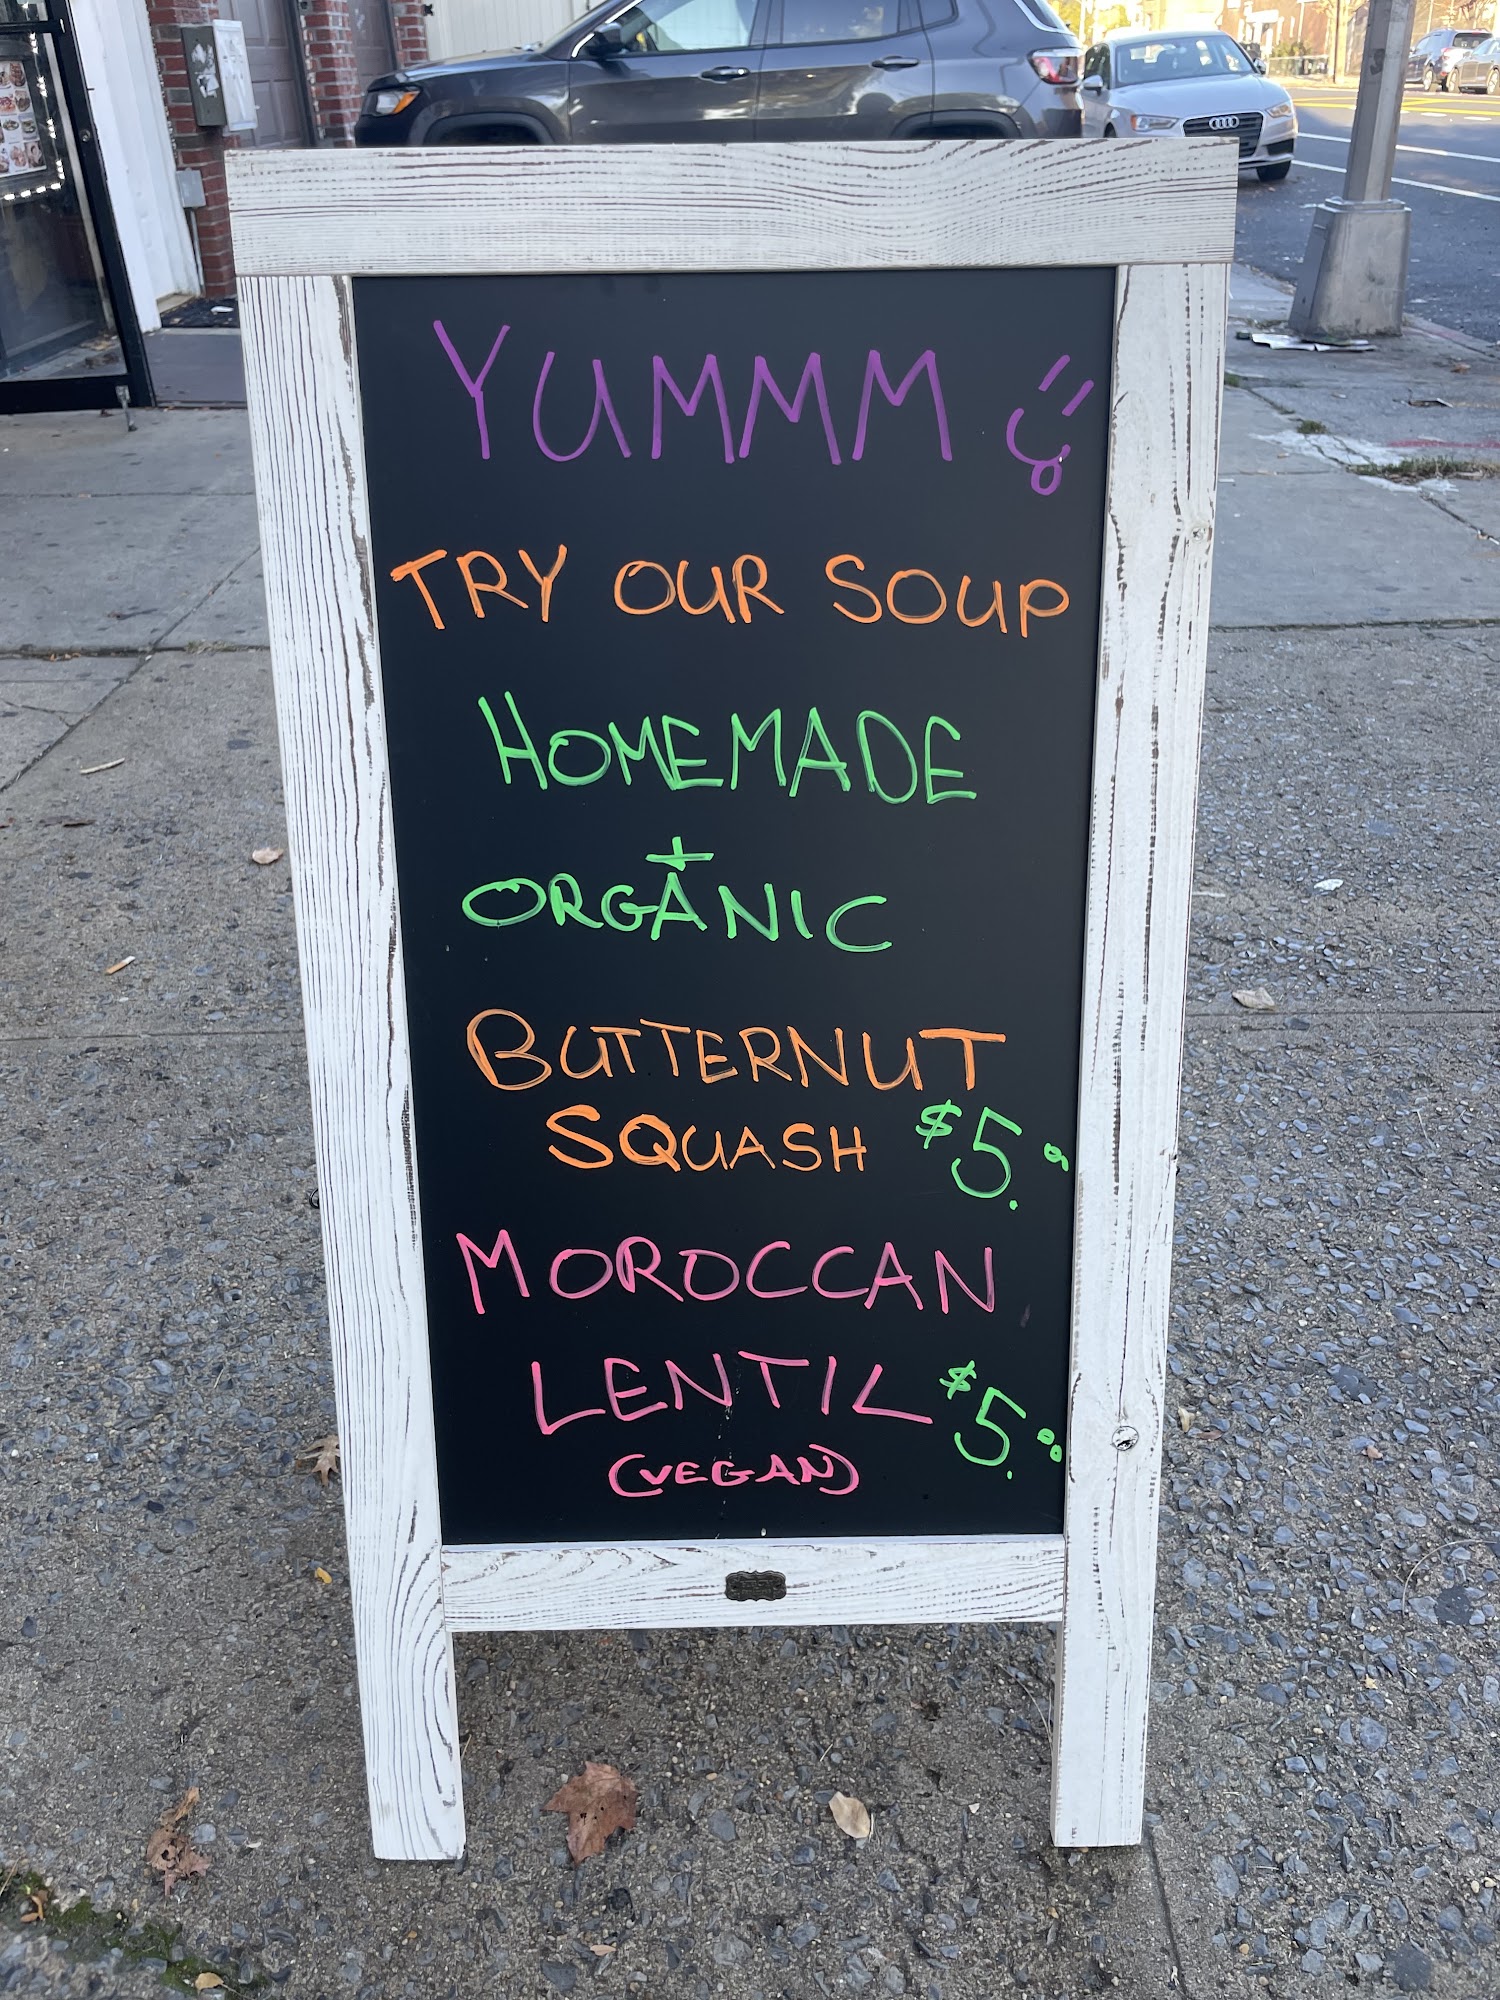 YUMMM
TRY OUR SOUP
HOMEMADE
+
ORGANIC
BUTTERNUT
SQUASH $5.00
MOROCCAN
LENTIL $5.00
(VEGAN)